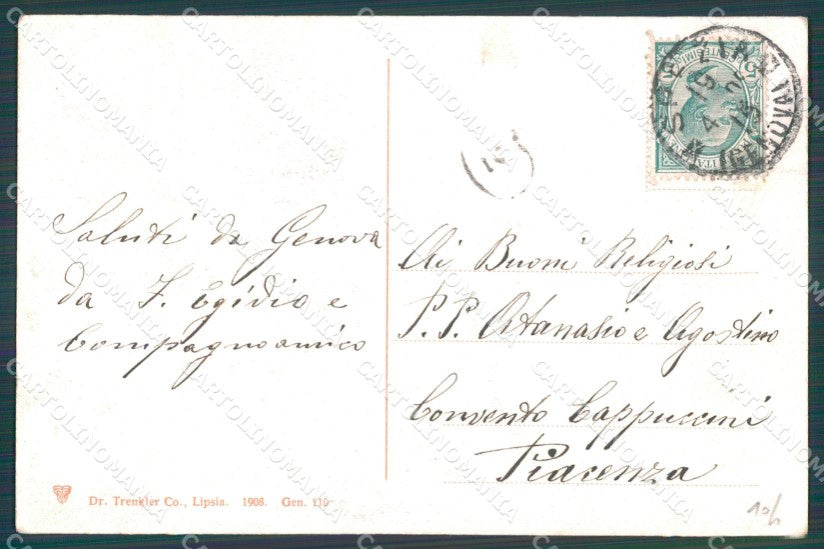 Saluti da Genova
da F. Egidio e
Compagno amico
Ai Buoni Religiosi
P. P. Atanasio e Agostino
Convento Cappuccini
Piacenza
Dr. Trenkler Co., Lipsia. 1908. Gen. 110
CARTOLINOMANIA